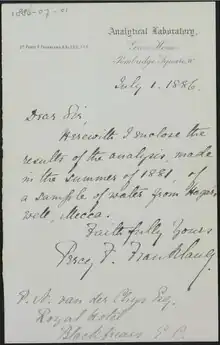 1886-07-01
Analytical Laboratory,
July 1. 1886.
Dear Sir,
Herewith I enclose the
results of the analysis, made
in the summer of 1881, of
a sample of water from Hagar's
well, Mecca.
Faithfully Yours
Percy F. Frankland.
P. A. van der Chys Esq.
Royal Hotel
Blackfriars